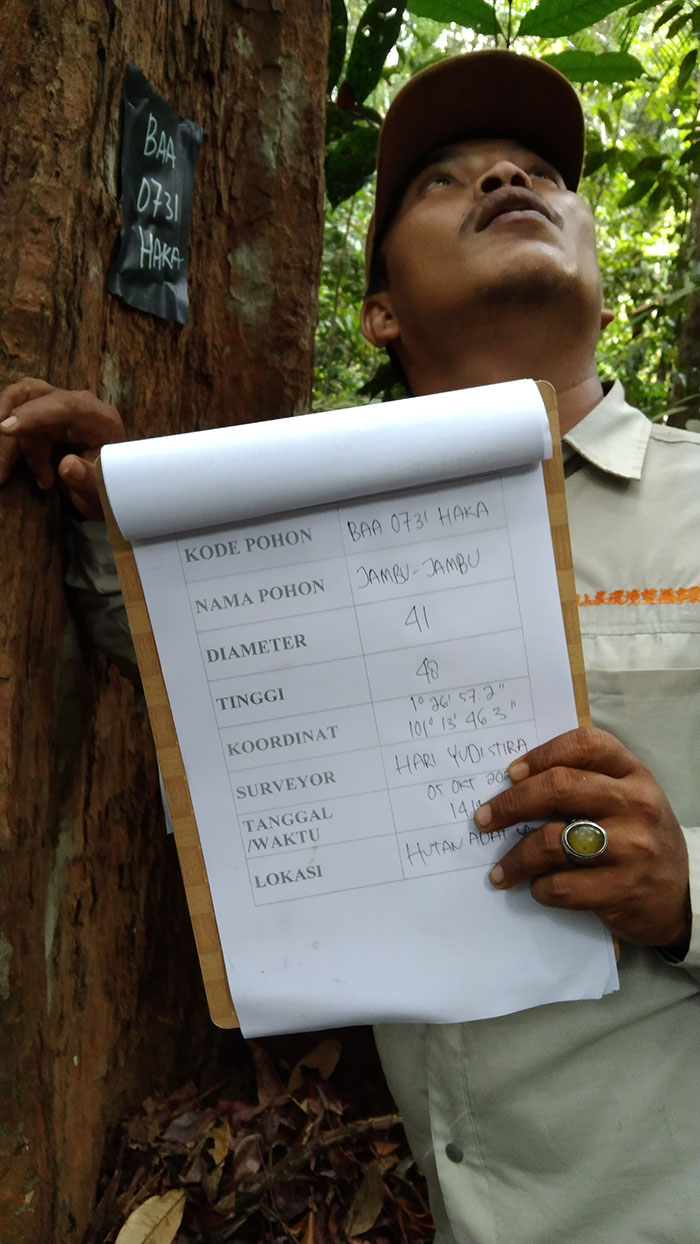 BAA
0731
HAKA
KODE POHON BAA 0731 HAKA
NAMA POHON JAMBU-JAMBU
DIAMETER 41
TINGGI 48
KOORDINAT 1° 26' 57.2"
101° 13' 46.3"
SURVEYOR HARI YUDISTIRA
TANGGAL
/WAKTU 05 OKT
LOKASI HUTAN ADAT